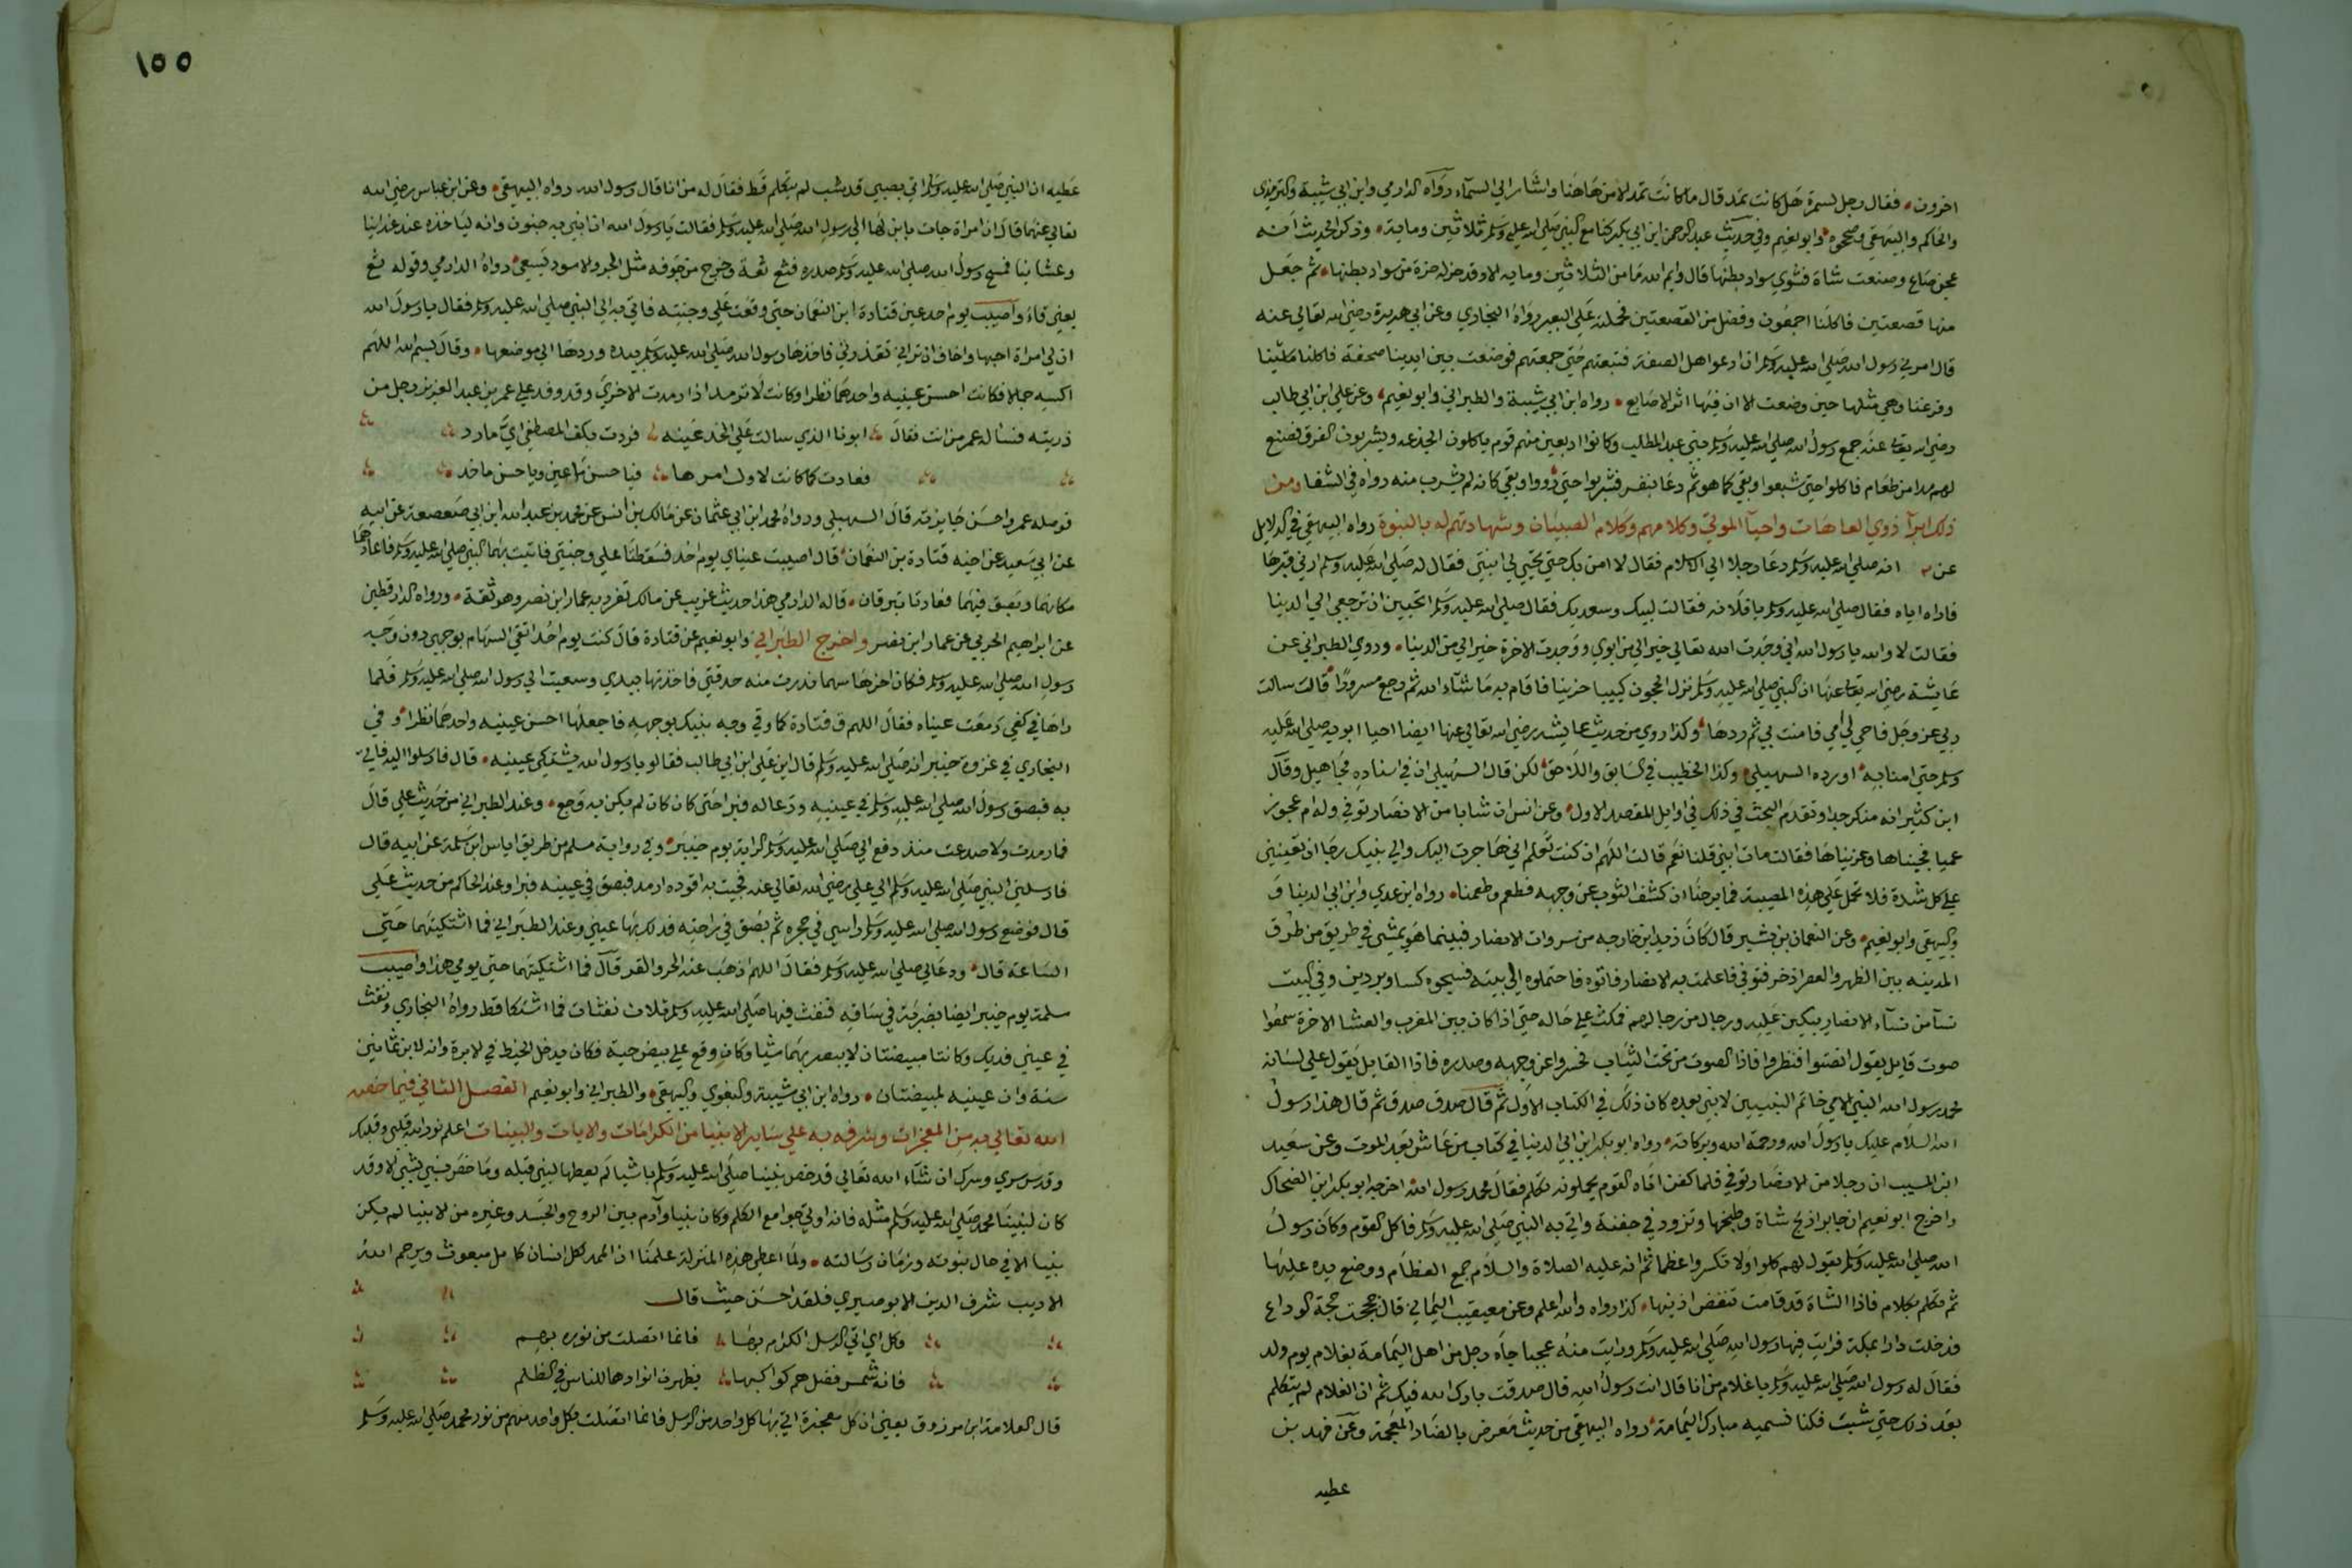 اخرون فقال رجل لسمرة هل كانت تمد قال ما كانت تمد الا من هاهنا واشار الي السماء رواه الدارمي وابن ابي شيبة والترمذي
والحاكم والبيهقي وصححوه وابو نعيم وفي حديث عبد الرحمن ابن ابي بكر كنا مع النبي صلي الله عليه وسلم ثلاثين وماية وذكر الحديث انه
عجن صاع وصنعت شاة فشوي سواد بطنها قال وايم الله ما من الثلاثين وماية الا وقد حز له حزة من سواد بطنها ثم جعل
منها قصعتين فاكلنا اجمعون وفضل من القصعتين فحملته علي البعير رواه البخاري وعن ابي هريرة رضي الله تعالي عنه
قال امرني رسول الله صلي الله عليه وسلم ان ادعوا اهل الصفة فتبعتهم حتي جمعتهم فوضعت بين ايدينا صحفة فاكلنا ما شينا
وفرغنا وهي مثلها حين وضعت الا ان فيها اثر الاصابع رواه ابن ابي شيبة والطبراني وابو نعيم وعن علي ابن ابي طالب
رضي الله تعالي عنه جمع رسول الله صلي الله عليه وسلم بني عبد المطلب وكانوا اربعين منهم قوم ياكلون الجذعه ويشربون الفرق فصنع
لهم مدا من طعام فاكلوا حتي شبعوا وبقي كما هو ثم دعا بنفر فشربوا حتي رووا وبقي كانه لم يشرب منه رواه في الشفا ومن
ذلك ابرآ ذوي العاهات واحيآ الموتي وكلامهم وكلام الصبيان وشهادتهم له بالنبوة رواه البيهقي في الدلايل
عن انه صلي الله عليه وسلم دعا رجلا الي الاسلام فقال لا امن بك حتي تحيي لي ابنتي فقال له صلي الله عليه وسلم ارني قبرها
فاراه اياه فقال صلي الله عليه وسلم يا فلانه فقالت لبيك وسعديك فقال صلي الله عليه وسلم اتحبين ان ترجعي الي الدنيا
فقالت لا والله يا رسول الله اني وجدت الله تعالي خير الي من ابوي ووجدت الاخرة خير الي من الدنيا وروي الطبراني عن
عايشة رضي الله تعالي عنها ان النبي صلي الله عليه وسلم نزل الحجون كييبا حزينا فاقام به ما شاء الله ثم رجع مسرورا قالت سالت
ربي عز وجل فاحي لي امي فامنت بي ثم ردها وكذا روي من حديث عايشه رضي الله تعالي عنها ايضا احيا ابويه صلي الله عليه
وسلم حتي امنا به اورده السهيلي وكذا الخطيب في السابق واللاحق لكن قال السهيلي ان في اسناده مجاهيل وقال
ابن كثير انه منكر جدا وتقدم البحث في ذلك في اوايل المقصد الاول وعن انس ان شابا من الانصار توفي وله ام عجوز
عميا فجيناها وعزيناها فقالت مات ابني قلنا نعم قالت اللهم ان كنت تعلم اني هاجرت اليك والي نبيك رجا ان تعينني
علي كل شدة فلا تحمل علي هذه المصيبة فما برحنا ان كشف الثوب عن وجهه فطعم وطعمنا رواه ابن عدي وابن ابي الدنيا و
والبيهقي وابو نعيم وعن النعمان بن بشير قال كان زيد ابن خارجه من سروات الانصار فبينما هو يمشي في طريق من طرق
المدينه بين الظهر والعصر اذ خر فتوفي فاعلمت به الانصار فاتوه فاحتملوه الي بيته فسجوه كسا وبردين وفي البيت
نسآ من نسآء الانصار يبكين عليه ورجال من رجالهم فمكث علي حاله حتي اذا كان بين المغرب والعشا الاخرة سمعوا
صوت قايل يقول انصتوا فنظروا فاذا الصوت من تحت الثياب فحسروا عن وجهه وصدره فاذا القايل يقول علي لسانه
محمد رسول الله النبي الامي خاتم النبيين لا نبي بعده كان ذلك في الكتاب الاول ثم قال صدق صدق ثم قال هذا رسول
الله السلام عليك يا رسول الله ورحمة الله وبركاته رواه ابو بكر ابن ابي الدنيا في كتاب من عاش بعد الموت وعن سعيد
ابن المسيب ان رجلا من الانصار توفي فلما كفن اتاه القوم يحملونه تكلم فقال محمد رسول الله اخرجه ابو بكر ابن الضحاك
واخرج ابو نعيم ان جابر اذبح شاة وطبخها وتزود في جفنة واتي به النبي صلي الله عليه وسلم فاكل القوم وكان رسول
الله صلي الله عليه وسلم يقول لهم كلوا ولا تكسروا عظما ثم انه عليه الصلاة والسلام جمع العظام ووضع يده عليها
ثم تكلم بكلام فاذا الشاة قد قامت تنفض اذنيها كذا رواه والله اعلم وعن معيقيب اليماني قال حججت حجة الوداع
فدخلت دارا بمكة فرايت فيها رسول الله صلي الله عليه وسلم ورايت منه عجبا جآه رجل من اهل اليمامة بغلام يوم ولد
فقال له رسول الله صلي الله عليه وسلم يا غلام من انا قال انت رسول الله قال صدقت بارك الله فيك ثم ان الغلام لم يتكلم
بعد ذلك حتي شبت فكنا نسميه مبارك اليمامة رواه البيهقي من حديث معرض بالضاد المعجمة وعن فهد بن
عطيه
١٥٥
عطيه ان النبي صلي الله عليه وسلم اتي بصبي قد شب لم يتكلم قط فقال له من انا قال رسول الله رواه البيهقي وعن ابن عباس رضي الله
تعالي عنهما قال ان امراة جات بابن لها الي رسول الله صلي الله عليه وسلم فقالت يا رسول الله ان ابني به جنون وانه لياخذه عند غدانيا
وعشانيا فمسح رسول الله صلي الله عليه وسلم صدره فثع ثعة وخرج من جوفه مثل الجرو الاسود يسعي رواه الدارمي وقوله ثع
يعني قاء واصيب يوم احد عين قتادة ابن النعمان حتي وقعت علي وجنته فاتي به الي النبي صلي الله عليه وسلم فقال يا رسول الله
ان لي امراة احبها واخاف ان تراني تقذرني فاخذها رسول الله صلي الله عليه وسلم بيده وردها الي موضعها وقال بسم الله اللهم
اكسبه جمالا فكانت احسن عينيه واحدهما نظرا وكانت لا ترمد اذا رمدت الاخري وقد وفد علي عمر بن عبد العزيز رجل من
ذريته فسئاله عمر من انت فقال ابونا الذي سالت علي الخد عينه فردت بكف المصطفي ايما رد
فعادت كما كانت لاول امرها فيا حسن ما عين ويا حسن ما خد
فوصله عمر واحسن جايزته قال السهيلي ورواه محمد ابن ابي عثمان عن مالك بن انس عن محمد بن عبد الله ابن ابي صعصعة عن ابيه
عن ابي سعيد عن اخيه قتادة بن النعمان قال اصيبت عيناي يوم احد فسقطنا علي وجنتي فاتيت بهما النبي صلي الله عليه وسلم فاعادهما
مكانهما وبصق فيهما فعادتا تبرقان قاله الدارمي هذا حديث غريب عن مالك تفرد به عمار ابن نصر وهو ثقة ورواه الدارقطني
عن ابراهيم الحربي عن عمار ابن نصر واخرج الطبراني وابو نعيم عن قتادة قال كنت يوم احد اتقي السهام بوجهي دون وجه
رسول الله صلي الله عليه وسلم فكان اخرها سهما ندرت منه حدقتي فاخذتها بيدي وسعيت الي رسول الله صلي الله عليه وسلم فلما
راها في كفي دمعت عيناه فقال اللهم ق قتادة كما وقي وجه نبيك بوجهه فاجعلها احسن عينيه واحدهما نظرا وفي
البخاري في غزوة خيبر انه صلي الله عليه وسلم قال اين علي ابن ابي طالب فقالوا يا رسول الله يشتكي عينيه قال فارسلوا اليه فاتي
به فبصق رسول الله صلي الله عليه وسلم في عينيه ودعا له فبرا حتي كان كان لم يكن به وجع وعند الطبراني من حديث علي قال
فما رمدت ولا صدعت منذ دفع الي صلي الله عليه وسلم الراية يوم خيبر وفي رواية مسلم من طريق اياس ابن سلمة عن ابيه قال
فارسلني النبي صلي الله عليه وسلم الي علي رضي الله تعالي عنه فجيت به اقوده ارمد فبصق في عينيه فبرا وعند الحاكم من حديث علي
قال فوضع رسول الله صلي الله عليه وسلم راسي في حجره ثم بصق في راحته فدلك بها عيني وعند الطبراني فما اشتكيتهما حتي
الساعة قال ودعا لي صلي الله عليه وسلم فقال اللهم اذهب عنه الحر والقر قال فما اشتكيتهما حتي يومي هذا واصيب
سلمة يوم خيبر ايضا بضربة في ساقه فنفث فيها صلي الله عليه وسلم ثلاث نفثات فما اشتكا قط رواه البخاري ونفث
في عيني فديك وكانتا مبيضتان لا يبصر بهما شيا وكان وقع علي بيض حية فكان يدخل الخيط في الابرة وانه لابن ثمانين
سنة وان عينيه لمبيضتان رواه ابن ابي شيبة والبغوي والبيهقي والطبراني وابو نعيم الفصل الثاني فيما خصه
الله تعالي به من المعجزات وشرفه به علي ساير الانبيا من الكرامات والايات والبينات اعلم نور الله قلبي وقلبك
وقدس سري وسرك ان شآء الله تعالي قد خص نبينا صلي الله عليه وسلم باشيا لم يعطها لنبي قبله وما خص نبي بشي الا وقد
كان لنبينا محمد صلي الله عليه وسلم مثله فانه اوتي جوامع الكلم وكان نبيا وآدم بين الروح والجسد وغيره من الانبيا لم يكن
نبيا الا في حال نبوته وزمان رسالته ولما اعطي هذه المنزلة علمنا انه الممد لكل انسان كامل مبعوث ويرحم الله
الاديب شرف الدين الابوصيري فلقد احسن حيث قال
وكل اي اتي الرسل الكرام بها فانما اتصلت من نوره بهم
فانه شمس فضل هم كواكبها يظهرن انوارها للناس في الظلم
قال العلامة ابن مرزوق يعني ان كل معجزة اتي بها كل واحد من الرسل فانما اتصلت بكل واحد منهم من نور محمد صلي الله عليه وسلم